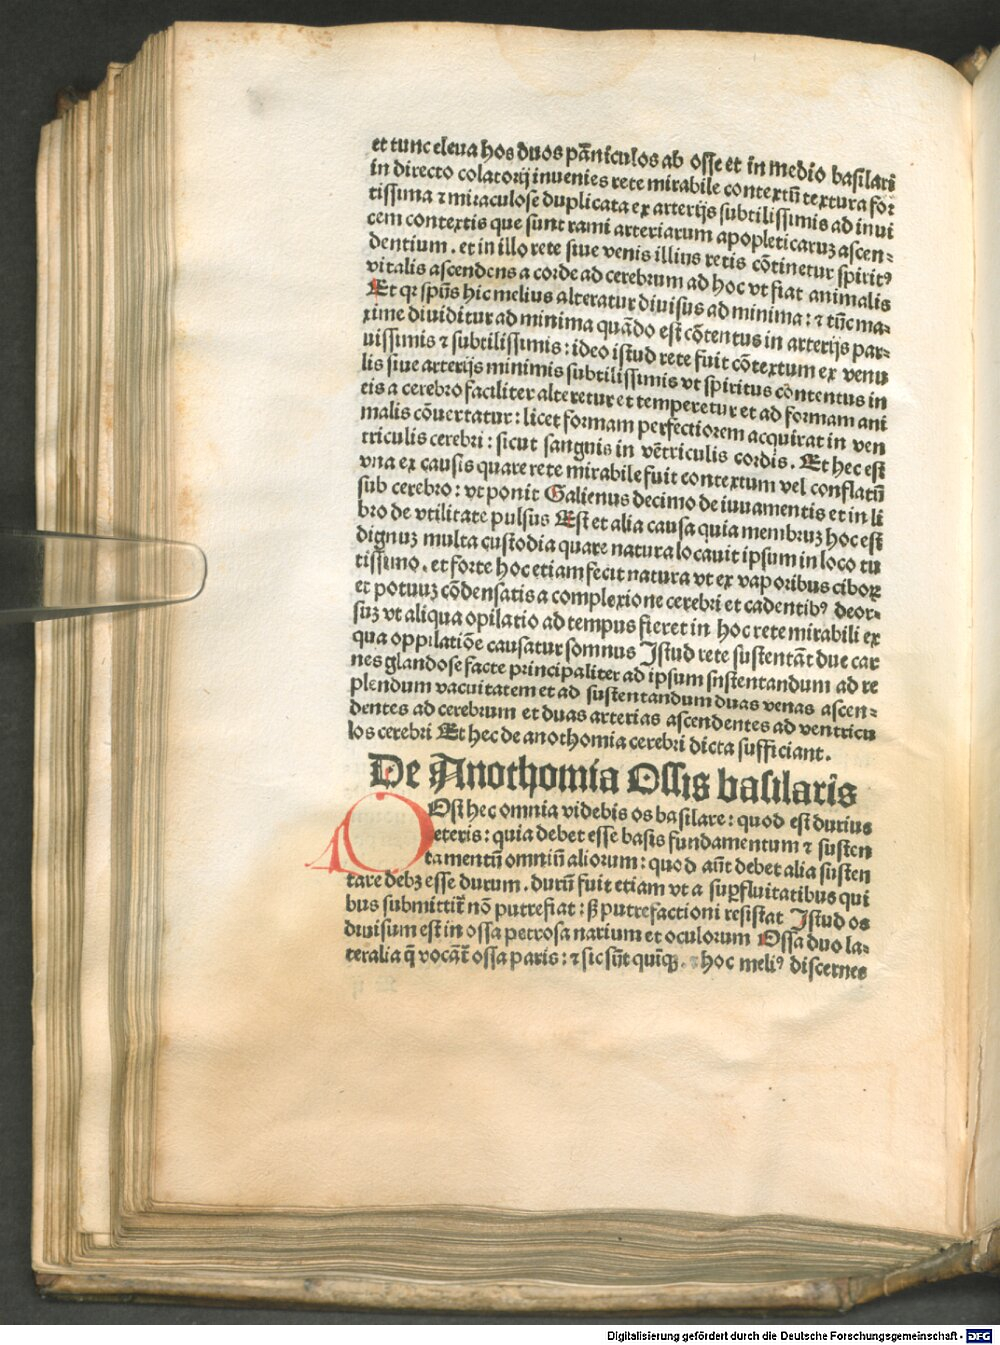 et tunc eleua hos duos pāniculos ab osse et in medio basilaris
in directo colatorij inuenies rete mirabile contextū textura for
tissima ⁊ miraculose duplicata ex arterijs subtilissimis ad inui
cem contextis que sunt rami arteriarum apopleticaruꝫ ascen⸗
dentium . et in illo rete siue venis illius retis cōtinetur spiritꝰ
vitalis ascendens a corde ad cerebrum ad hoc vt fiat animalis
Et qr spūs hic melius alteratur diuisus ad minima : ⁊ tūc ma⸗
xime diuiditur ad minima quādo est cōtentus in arterijs par⸗
uissimis ⁊ subtilissimis : ideo istud rete fuit cōtextum ex venu
lis siue arterijs minimis subtilissimis vt spiritus contentus in
tis a cerebro faciliter alteretur et temperetur et ad formam ani
malis cōuertatur : licet formam perfectiorem acquirat in ven
triculis cerebri : sicut sangnis in vētriculis cordis . Et hec est
vna ex causis quare rete mirabile fuit contextum vel conflatū
sub cerebro : vt ponit Galienus decimo de iuuamentis et in li
bro de vtilitate pulsus Est et alia causa quia membruꝫ hoc est
dignuꝫ multa custodia quare natura locauit ipsum in loco tu
tissimo . et forte hoc etiam fecit natura vt ex vaporibus ciboꝝ
et potuuꝫ cōdensatis a complexione cerebri et cadentibꝰ deor⸗
suꝫ vt aliqua opilatio ad tempus fieret in hoc rete mirabili ex
qua oppilatiōe causatur somnus Istud rete sustentāt due car
nes glandose facte principaliter ad ipsum snstentandum ad re
plendum vacuitatem et ad sustentandum duas venas ascen⸗
dentes ad cerebrum et duas arterias ascendentes ad ventricu
los cerebri Et hec de anothomia cerebri dicta sufficiant .
De Anothomia Ossis basilaris
POst hec omnia videbis os basilare : quod est durius
ceteris : quia debet esse basis fundamentum ⁊ susten
tamentū omniū aliorum : quod aūt debet alia susten
tare debꝫ esse durum . durū fuit etiam vt a suꝑfluitatibus qui
bus submittit̄ nō putrefiat : sꝫ putrefactioni resistat Istud os
diuisum est in ossa petrosa narium et oculorum Ossa duo la⸗
teralia q̄ vocāt̄ ossa paris : ⁊ sic sūt quīqꝫ . ⁊ hoc meliꝰ discernes
Digitalisierung gefördert durch die Deutsche Forschungsgemeinschaft - DFG